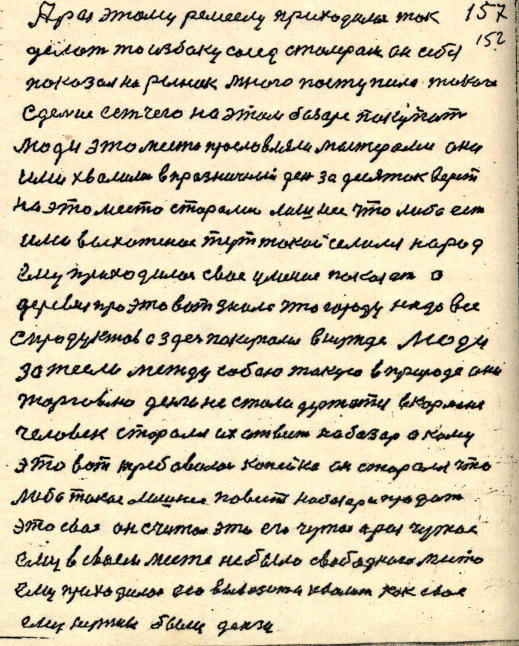 Араз этому ремеслу приходилос так 157
делат то избаку след столран он себя 152
показал на релнак много поступило такога
Сделие ест чего на этом базаре покупат
люди это место прословляли мастерами они
ими хвалилис в празничный ден за десяток верст
на это место старалис лишнее что либо ест
има выхоженое тут такой селился народ
ему приходилос свое умение показат а
деревня про это вот знала что городу надо все
с продуктов а здес покупали в нужде люди
затеели между собаю такую в природе они
торговлю денги не стали держати в кормане
человек старался их отвит на базар а каму
это вот требовалас копейка он старался что
либо такое лишнее повест на базар и продат
это свое он считал это его чужое а раз чужое
ему в своем месте не было свободного места
ему приходилос его вывозит и хвалит как свое
ему нужны были денги